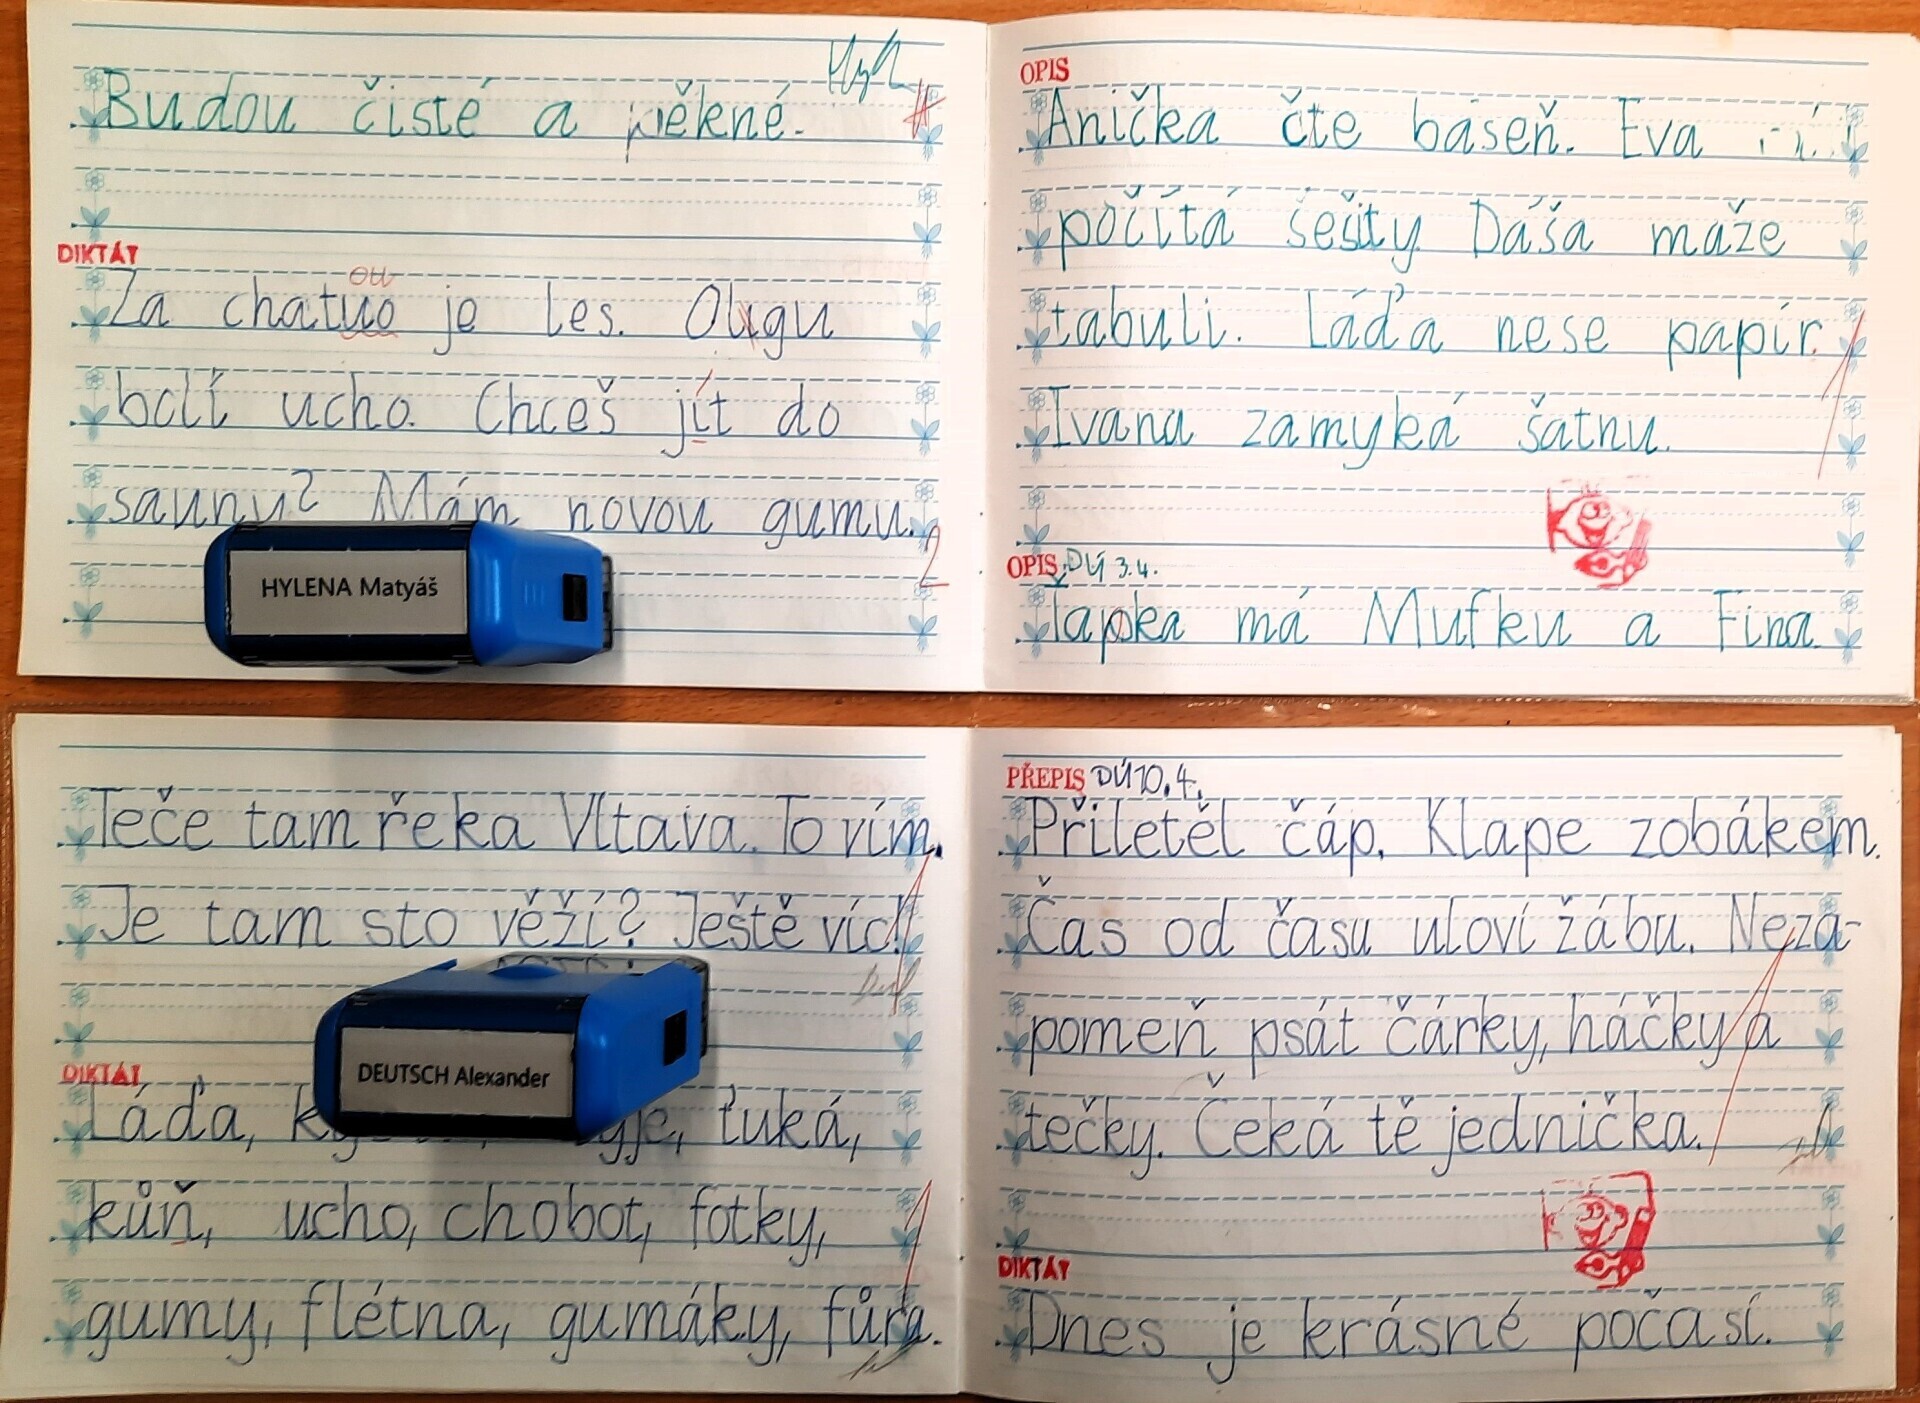 Budou čisté a pěkné.
DIKTÁT
ou
Za chatuo je les. Olgu
bolí ucho. Chceš jít do
saunu? Mám novou gumu.
2
HYLENA Matyáš
OPIS
Anička čte báseň. Eva
počítá sešity. Dáša maže
tabuli. Láďa nese papír.
1
Ivana zamyká šatnu.
OPIS DÚ 3.4.
Ťapka má Mufku a Fina.
Teče tam řeka Vltava. To vím.
Je tam sto věží? Ještě víc!
1
DEUTSCH Alexander
DIKTÁT
Láďa, ťuká,
kůň, ucho, chobot, fotky,
1
gumy, flétna, gumáky, fůra.
PŘEPIS DÚ 10.4.
Přiletěl čáp. Klape zobákem.
Čas od času uloví žábu. Neza-
pomeň psát čárky, háčky a
1
tečky. Čeká tě jednička.
DIKTÁT
Dnes je krásné počasí.